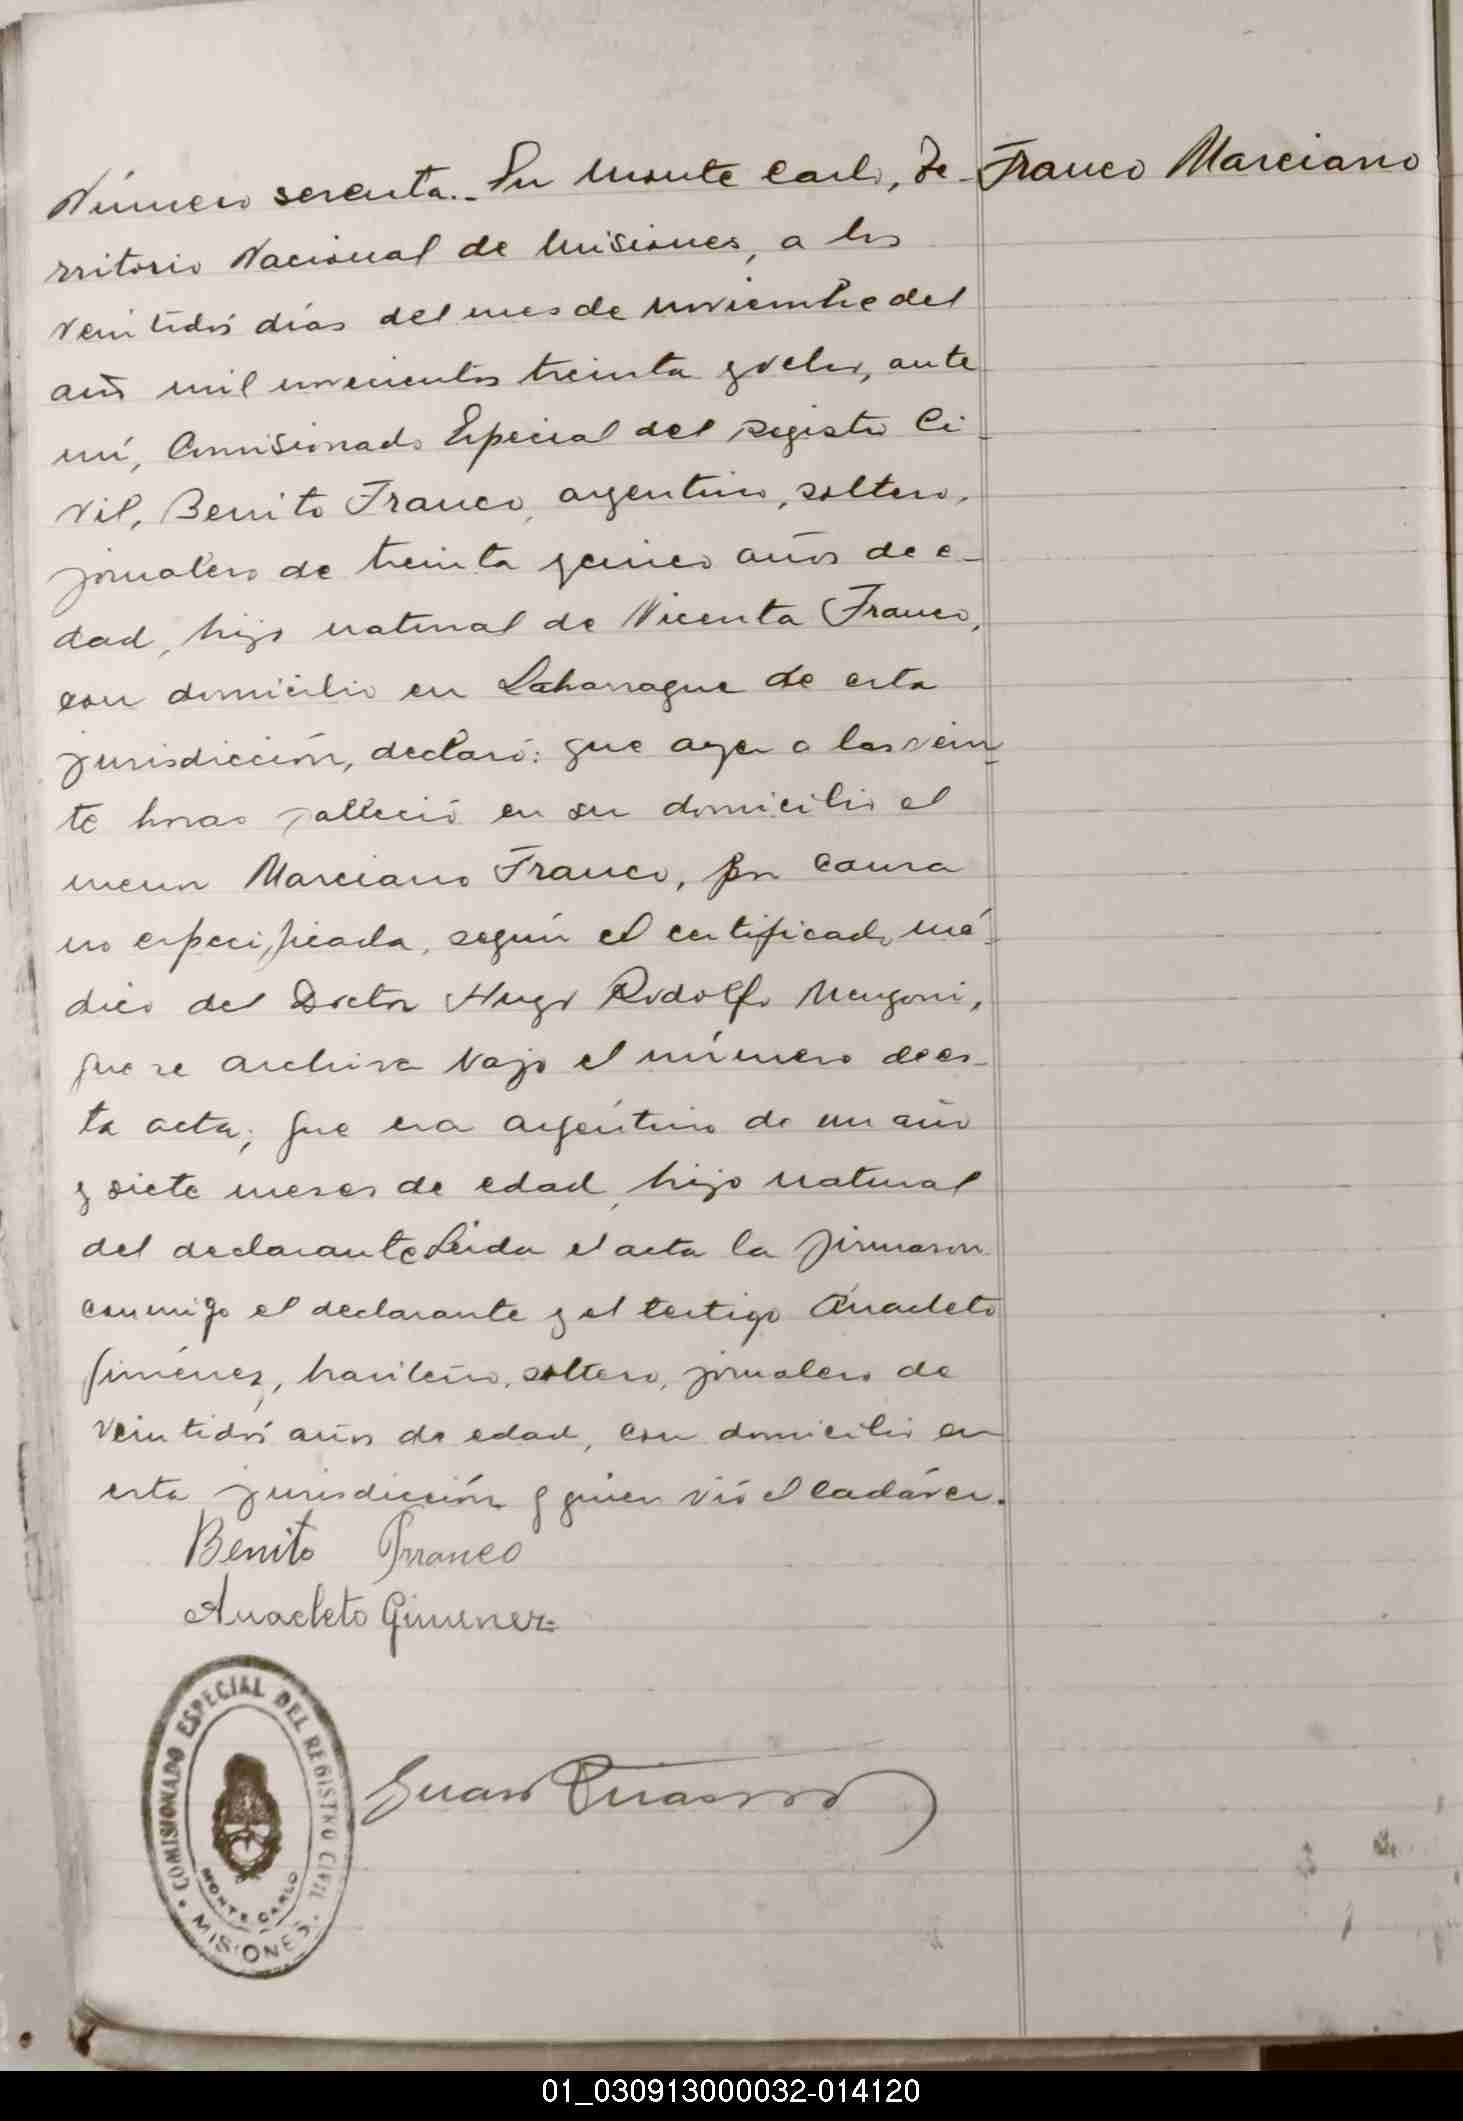 Número sesenta.. En Monte Carlo, Te-
Franco Marciano
rritorio Nacional de Misiones, a los
veintidós días del mes de noviembre del
año mil novecientos treinta y ocho, ante
mí, Comisionado Especial del Registro Ci-
vil, Benito Franco, argentino, soltero,
jornalero de treinta y cinco años de e-
dad, hijo natural de Vicenta Franco,
con domicilio en Laharrague de esta
jurisdicción, declaró: que ayer a las vein-
te horas falleció en su domicilio el
menor Marciano Franco, por causa
no especificada, según el certificado mé-
dico del Doctor Hugo Rodolfo Mengoni,
que se archiva vajo el número de es-
ta acta; que era argentino de un año
y siete meses de edad, hijo natural
del declarante Leida el acta la firmaron
conmigo el declarante y el testigo Anacleto
Giménez, brasileño, soltero, jornalero de
veintidós años de edad, con domicilio en
esta jurisdicción y quien vió el cadáver.
Benito Franco
Anacleto Gimenez=
COMISIONADO ESPECIAL DEL REGISTRO CIVIL
MONTE CARLO
MISIONES
Juan
01_030913000032-014120